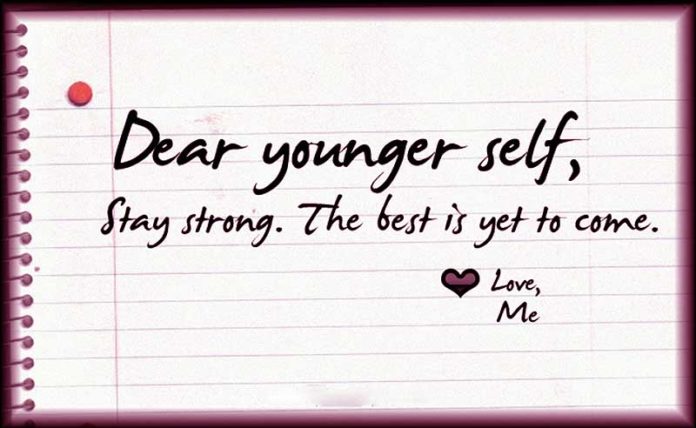 Dear younger self,
Stay strong. The best is yet to come.
Love,
Me